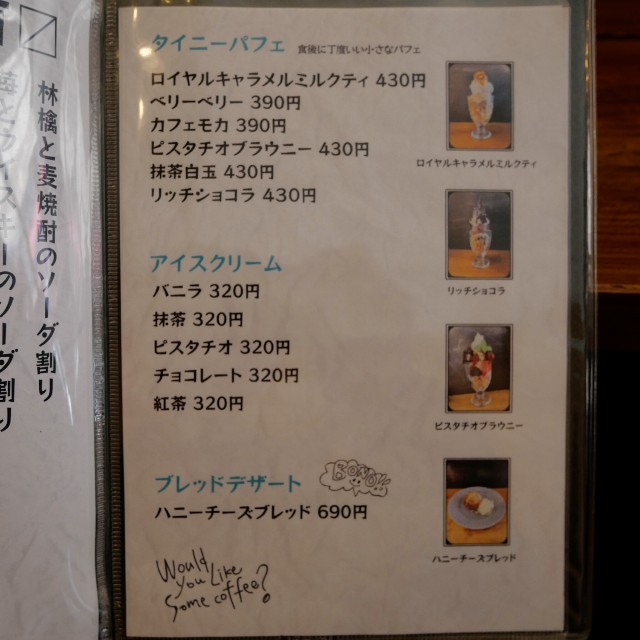 タイニーパフェ 食後に丁度いい小さなパフェ
ロイヤルキャラメルミルクティ 430円
ベリーベリー 390円
カフェモカ 390円
ピスタチオブラウニー 430円
抹茶白玉 430円
リッチショコラ 430円
ロイヤルキャラメルミルクティ
リッチショコラ
アイスクリーム
バニラ 320円
抹茶 320円
ピスタチオ 320円
チョコレート 320円
紅茶 320円
ピスタチオブラウニー
ブレッドデザート
ハニーチーズブレッド 690円
ハニーチーズブレッド
Would
you Like
Some coffee?
林檎と麦焼酎のソーダ割り
のソーダ割り